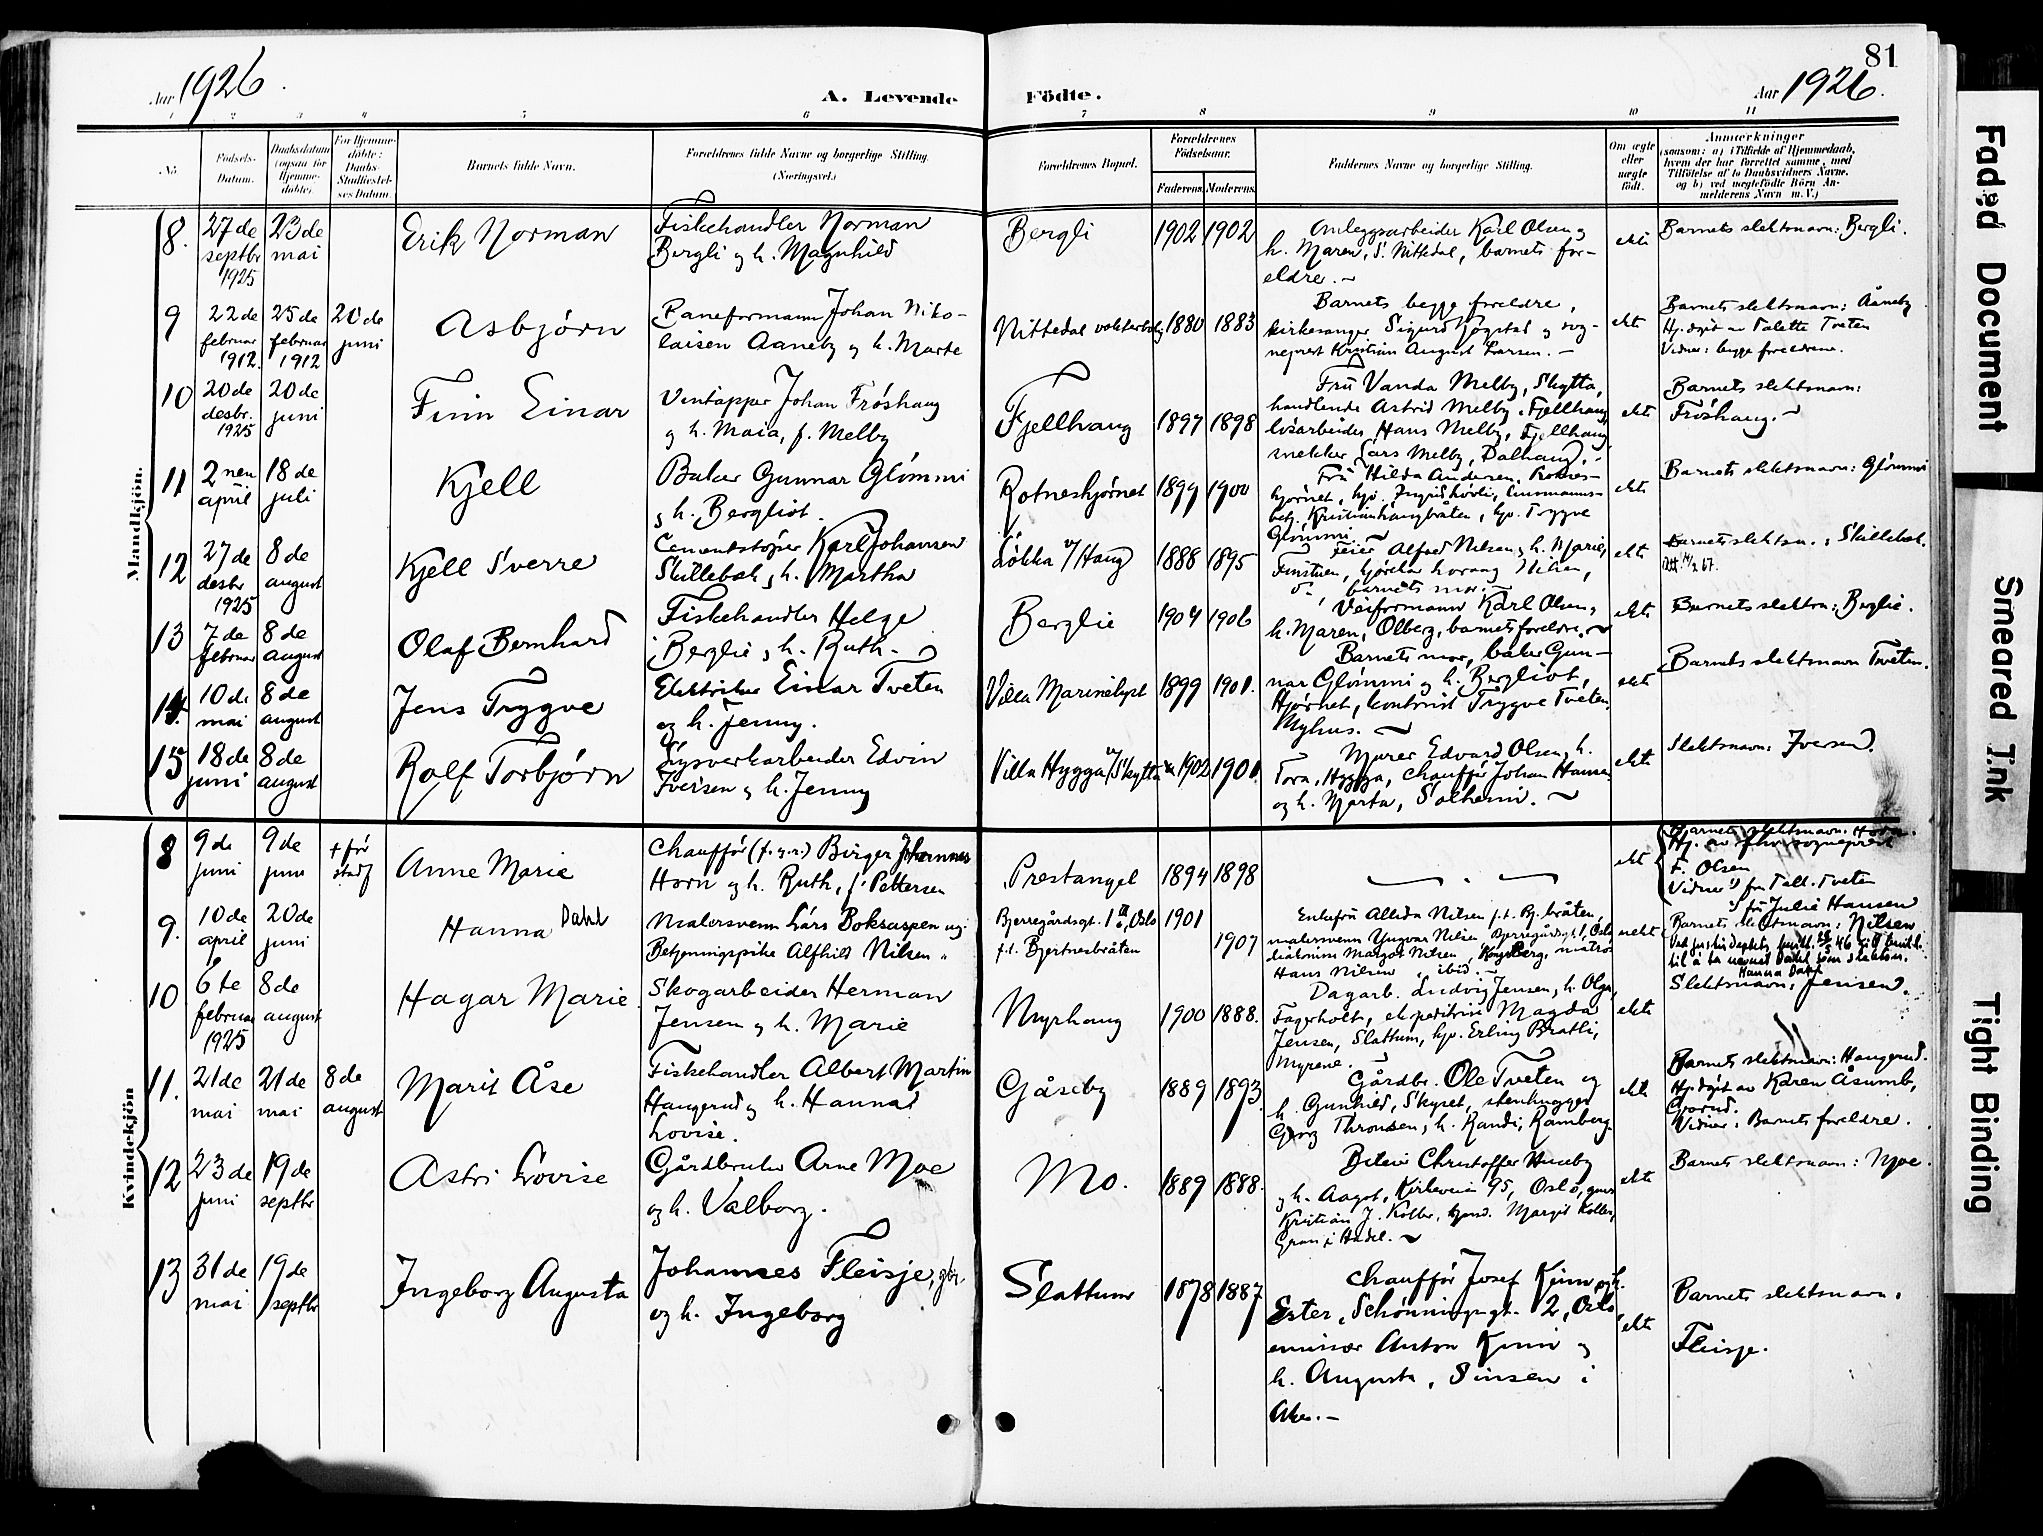 81
Aar 1926.
A. Levende
Födte.
Aar 1926.
1 2 3 4 5 6 7 8 9 10 11
No.
Födsels-
Datum.
Daabsdatum
(ogsaa for
Hjemme-
döbte).
For Hjemme-
döbte:
Daabs-
Stadfæstel-
ses Datum.
Barnets fulde Navn.
Forældrenes fulde Navne og borgerlige Stilling.
(Næringsvei.)
Forældrenes Bopæl.
Forældrenes
Födselsaar.
Faderens. Moderens.
Faddernes Navne og borgerlige Stilling.
Om ægte
eller
uægte
født.
Anmærkninger
(saasom: a) i Tilfælde af Hjemmedaab,
hvem der har forrettet samme, med
Tilföielse af to Daabsvidners Navne.
og b) ved uægtefödte Börn An-
melderens Navn m. V.)
Mandkjön.
8.
27 de
septbr
1925
23 de
mai
Erik Norman
Fiskehandler Norman
Bergli og h. Magnhild
Bergli
1902 1902
Anleggsarbeider Karl Olsen og
h. Maren, S. Nittedal, barnets for-
eldre. ~
ekte
Barnets slektsnavn: Bergli.
9
22 de
februar
1912.
25 de
februar
1912
20 de
juni
Asbjørn
Baneformann Johan Niko-
laisen Aaneby og h. Marte
Nittedal vokterbolig
1880 1883
Barnets begge foreldre,
kirkesanger Sigurd Høgstad og sog-
neprest Kristian August Larsen. —
ekte
Barnets slektsnavn: Åneby
Hj.døpt av Valette Tveten
Vidner: begge foreldrene.
10
20 de
desbr.
1925
20 de
juni
Finn Einar
Vintapper Johan Frøshaug
og h. Maia, f. Melby
Fjellhaug
1897 1898
Fru Vanda Melby, Skytta,
handlende Astrid Melby, Fjellhaug
løsarbeider Hans Melby, Fjellhaug,
snekker Lars Melby, Dalhaug. ~
ekte
Barnets slektsnavn:
Frøshaug. ~
11
2 nen
april
18 de
juli
Kjell
Baker Gunnar Glömmi
og h. Bergliot.
Rotneshjørnet
1899 1900
Fru Hilda Andersen, Rotnes-
hjørnet,
Kristianhaugbråten, hjv. Trygve
Glömmi. ~
ekte
Barnets slektsnavn: Glömmi
12
27 de
desbr
1925
8 de
august
Kjell Sverre
Cementstøper Karl Johansen
Skillebek og h. Martha
Løkka v/ Haug
1888 1895
Feier Alfred Nilsen og h. Marie,
Finstuen,
barnets mor.
ekte
Barnets slektsn.: Skillebek.
13
7 de
februar
8 de
august
Olaf Bernhard
Fiskehandler Helge
Berglie og h. Ruth.
Berglie
1904 1906
Veiformann Karl Olsen,
h. Maren, Ölberg, barnets foreldre. ~
ekte
Barnets slektsn: Berglie.
14.
10 de
mai
8 de
august
Jens Trygve
Elektriker Einar Tveten
og h. Jenny.
Villa Marienlyst
1899 1901.
Barnets mor, baker Gun-
nar Glömmi og h. Bergliot,
Hjørnet, kontorist Trygve Tveten,
Myhus. ~
ekte
Barnets slektsnavn Tveten.
15
18 de
juni
8 de
august
Rolf Torbjørn
Lysverkarbeider Edvin
Iversen og h. Jenny
Villa Hygga v/ Skytta
1902 1901.
Murer Edvard Olsen, h.
Tora, Hygga, chauffør Johan Hansen
og h. Marta, Solheim. ~
ekte
Slektsnavn: Iversen.
Kvindekjön
8
9 de
juni
9 de
juni
+ før
stadf
Anne Marie
Chauffør (f.g.r.) Birger Johannes
Horn og h. Ruth, f. Pettersen
Prestangel
1894 1898
ekte
Barnets slektsnavn: Horn.
Hj. av fhv. sogneprest
F. Olsen
Vidner: 1) fru Vall. Tveten
2) frk Julie Hansen
9.
10 de
april
20 de
juni
Hanna Dahl
Malersvenn Lars Boksaspen og
Betjeningspike Alfhild Nilsen
Bjerregårdsgt. 1 III, Oslo
f.t. Bjertnesbråten
1901
1907
Enkefru Allida Nilsen f.t. Bj.bråten,
malersvenn Yngvar Nilsen, Bjerregårdsgt. 1, Oslo
diakonisse Margot Nilsen, Kongsberg,
Hans Nilsen, ibid. ~
uekte
Barnets slektsnavn: Nilsen
til å ta navnet Dahl som slektsn.
Hanna Dahl
10
6 te
februar
1925
8 de
august
Hagar Marie
Skogarbeider Herman
Jensen og h. Marie
Myrhaug
1900 1888.
Dagarb. Ludvig Jensen, h. Olga,
Fagerholt, ekspeditrise Magda
Jensen, Slattum, hjv. Erling Bratli,
Myrene.
ekte
Slektsnavn: Jensen.
11.
21 de
mai
21 de
mai
8 de
august
Marit Åse
Fiskehandler Albert Martin
Haugerud og h. Hanna
Lovise.
Gåseby
1889 1893
Gårdbr. Ole Tveten og
h. Gunhild, Skyset, stenhugger
Georg Thronsen, h. Randi, Ramberg.
ekte
Barnets slektsnavn: Haugerud.
Hj.døpt av Karen Åsumb,
Gjerud.
Vidner: Barnets foreldre.
12
23 de
juni
19 de
septbr
Astri Lovise
Gårdbruker Arne Moe
og h. Valborg.
Mo.
1889 1888.
Christoffer Huseby
og h. Aagot, Kirkeveien 95, Oslo,
Kristian J. Koller, Margit Koller,
Gran i Hadel. ~
ekte
Barnets slektsnavn: Moe.
13
31 de
mai
19 de
septbr
Ingeborg Augusta
Johannes Fleisje, gbr.
og h. Ingeborg
Slattum
1878 1887
Chauffør Josef Kinn og h.
Ester, Schønningsgt. 2, Oslo,
emissær Anton Kinn og
h. Augusta, Sinsen i
Aker. —
ekte
Barnets slektsnavn:
Fleisje.
Faded Document
Smeared Ink
Tight Binding